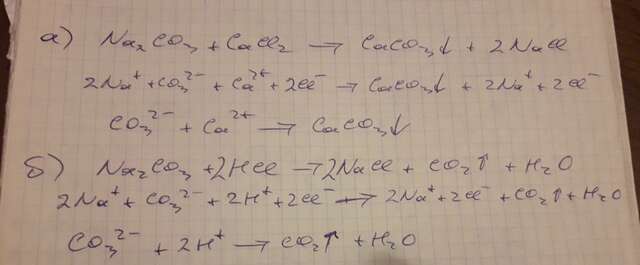 а) Na₂CO₃ + CaCl₂ → CaCO₃↓ + 2NaCl
2Na⁺ + CO₃²⁻ + Ca²⁺ + 2Cl⁻ → CaCO₃↓ + 2Na⁺ + 2Cl⁻
CO₃²⁻ + Ca²⁺ → CaCO₃↓
б) Na₂CO₃ + 2HCl → 2NaCl + CO₂↑ + H₂O
2Na⁺ + CO₃²⁻ + 2H⁺ + 2Cl⁻ → 2Na⁺ + 2Cl⁻ + CO₂↑ + H₂O
CO₃²⁻ + 2H⁺ → CO₂↑ + H₂O